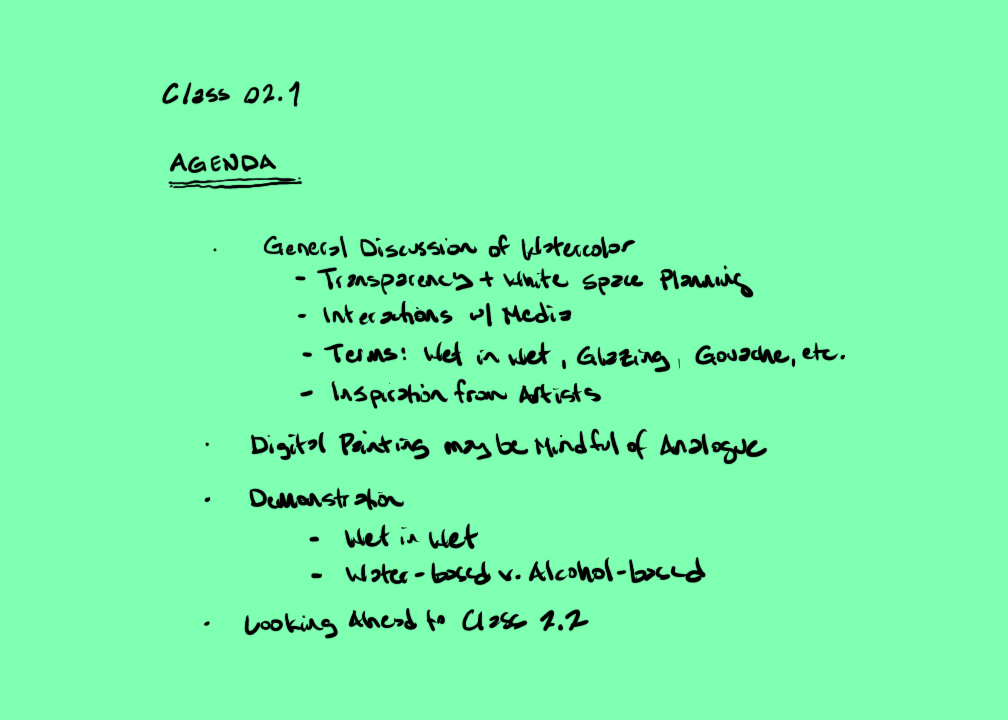 Class 02.1
AGENDA
· General Discussion of Watercolor
- Transparency + White Space Planning
- Interactions w/ Media
- Terms: Wet in Wet, Glazing, Gouache, etc.
- Inspiration from Artists
· Digital Painting may be Mindful of Analogue
· Demonstration
- Wet in Wet
- Water-based v. Alcohol-based
· Looking Ahead to Class 2.2